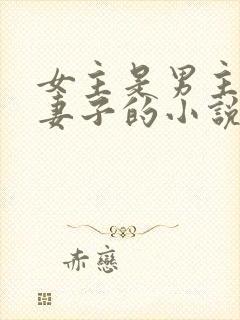 女主是男主
妻子的小說
赤戀